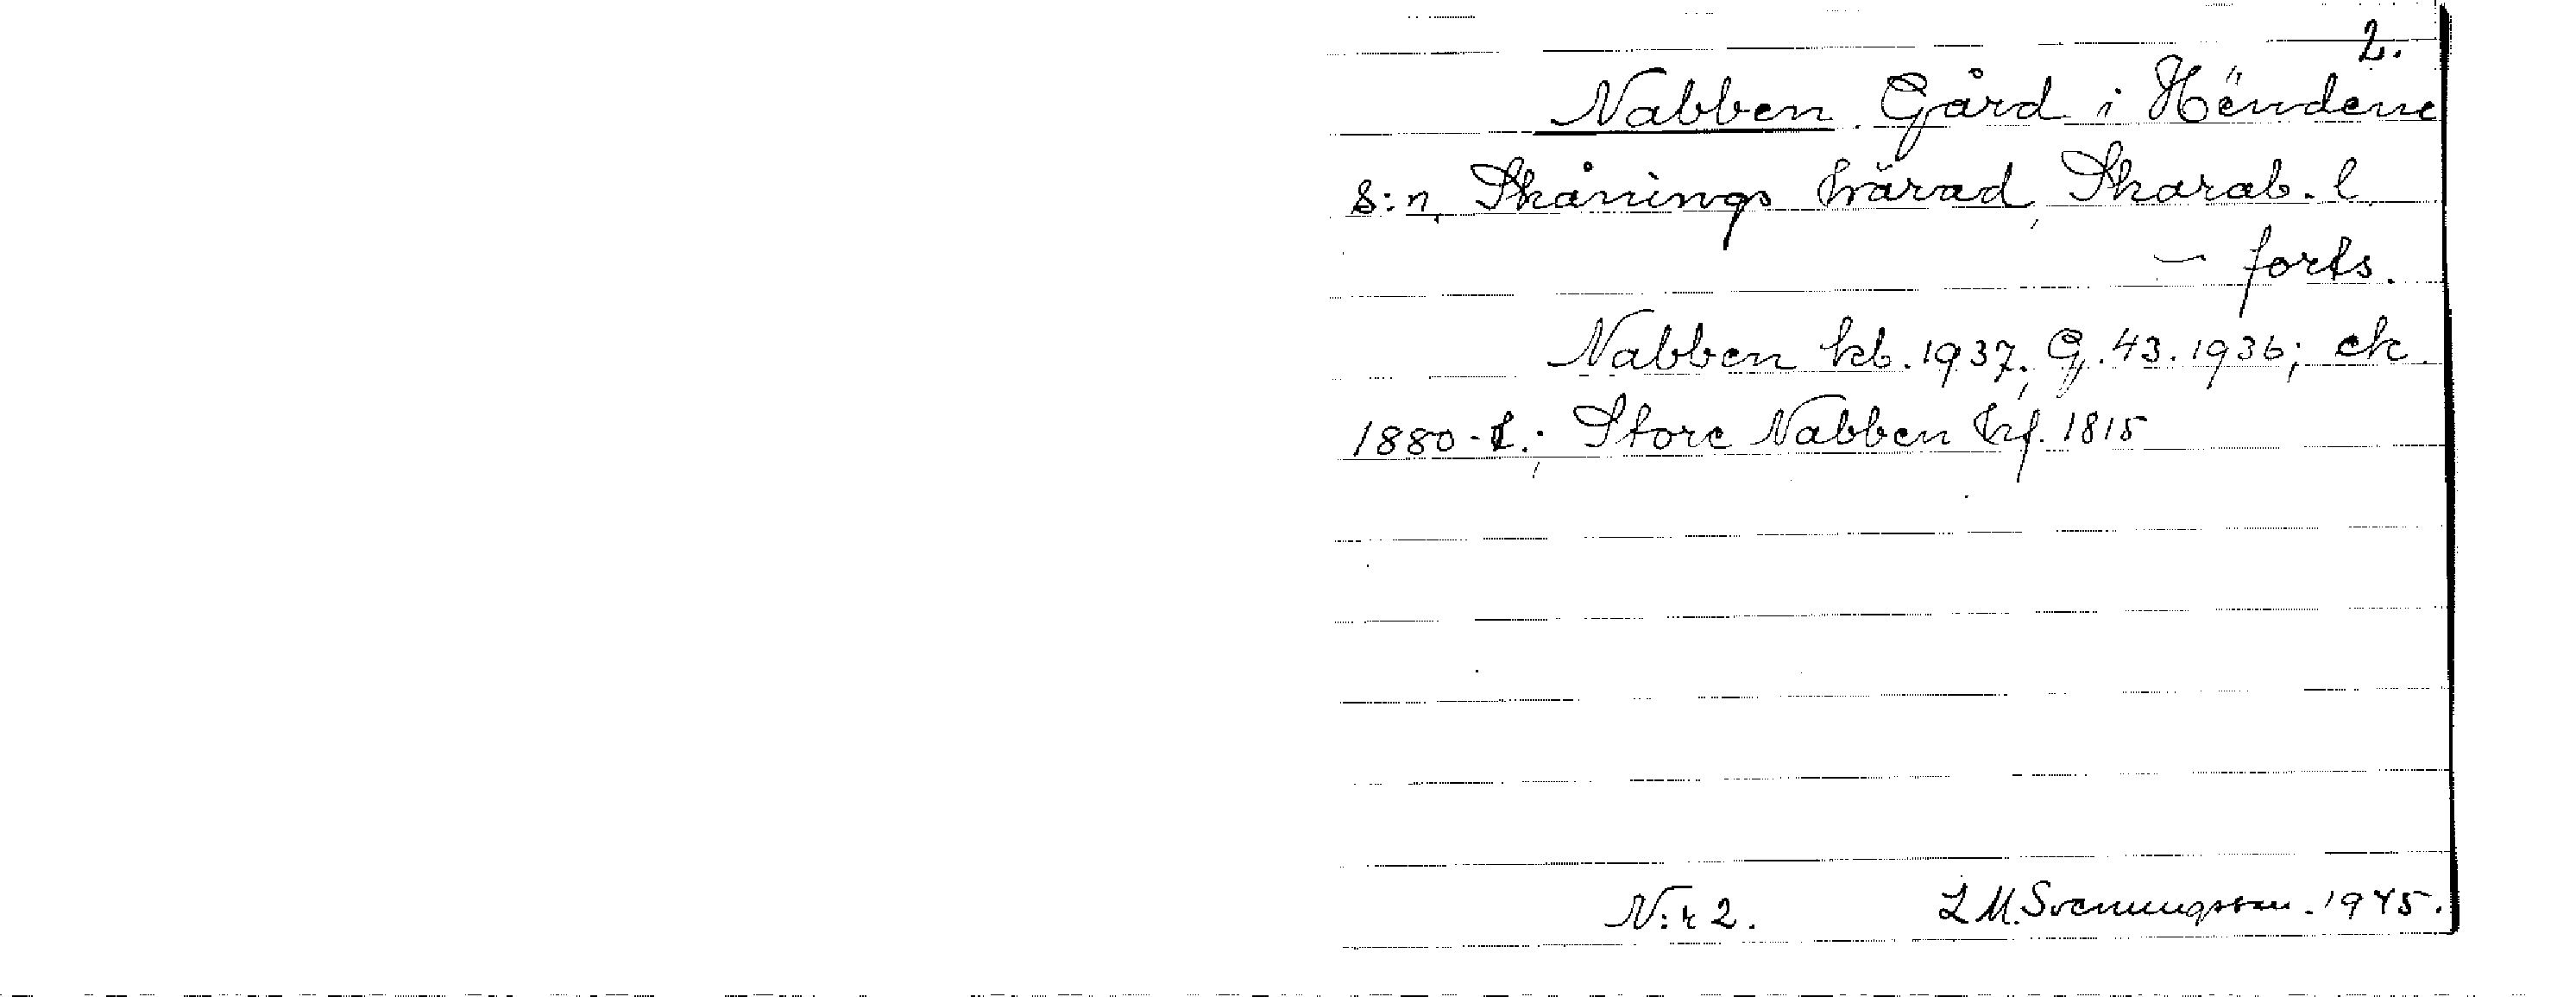 2.
Nabben. Gård i Händene
s:n, Skånings härad, Skarab. l.
– forts.
Nabben kb. 1937; G. 43. 1936; ek.
1880-t.; Store Nabben hf. 1815
N:r 2. L M. Svenungsson. 1945.